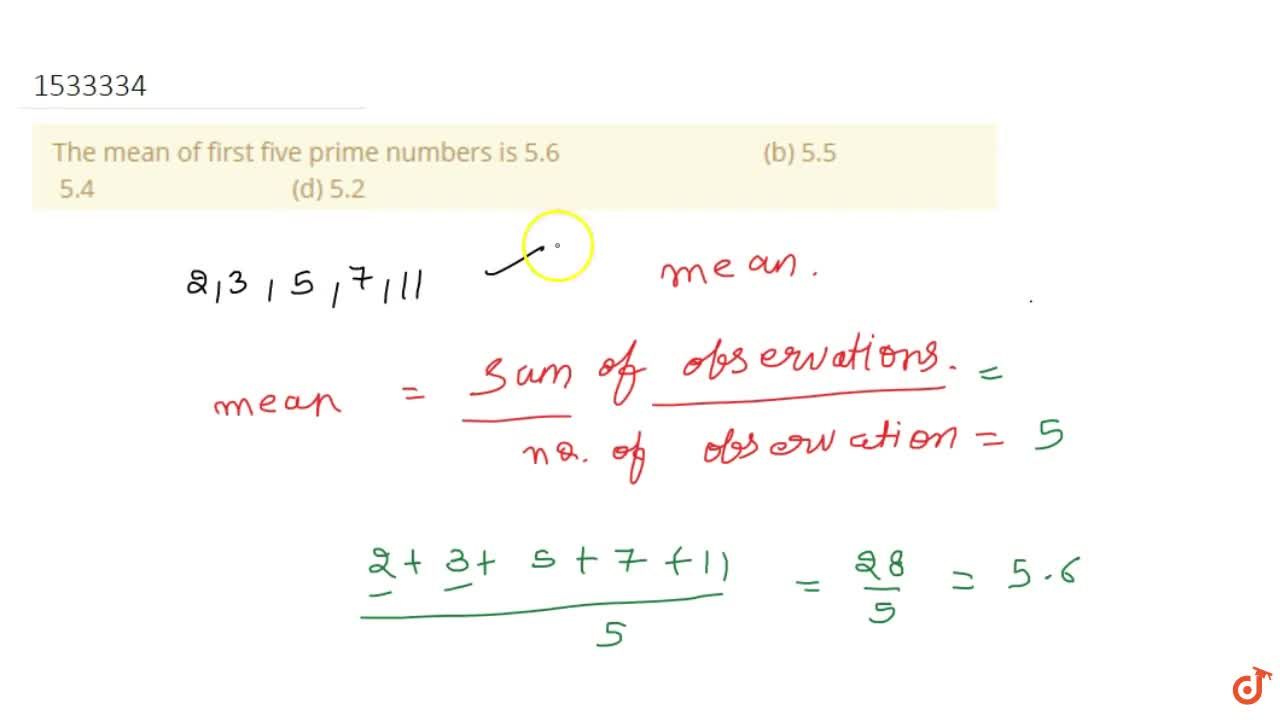 1533334
The mean of first five prime numbers is 5.6 (b) 5.5
5.4 (d) 5.2
2,3,5,7,11
mean.
mean = Sum of observations. =
no. of observation = 5
2+3+5+7+11 = 28 = 5.6
5 5